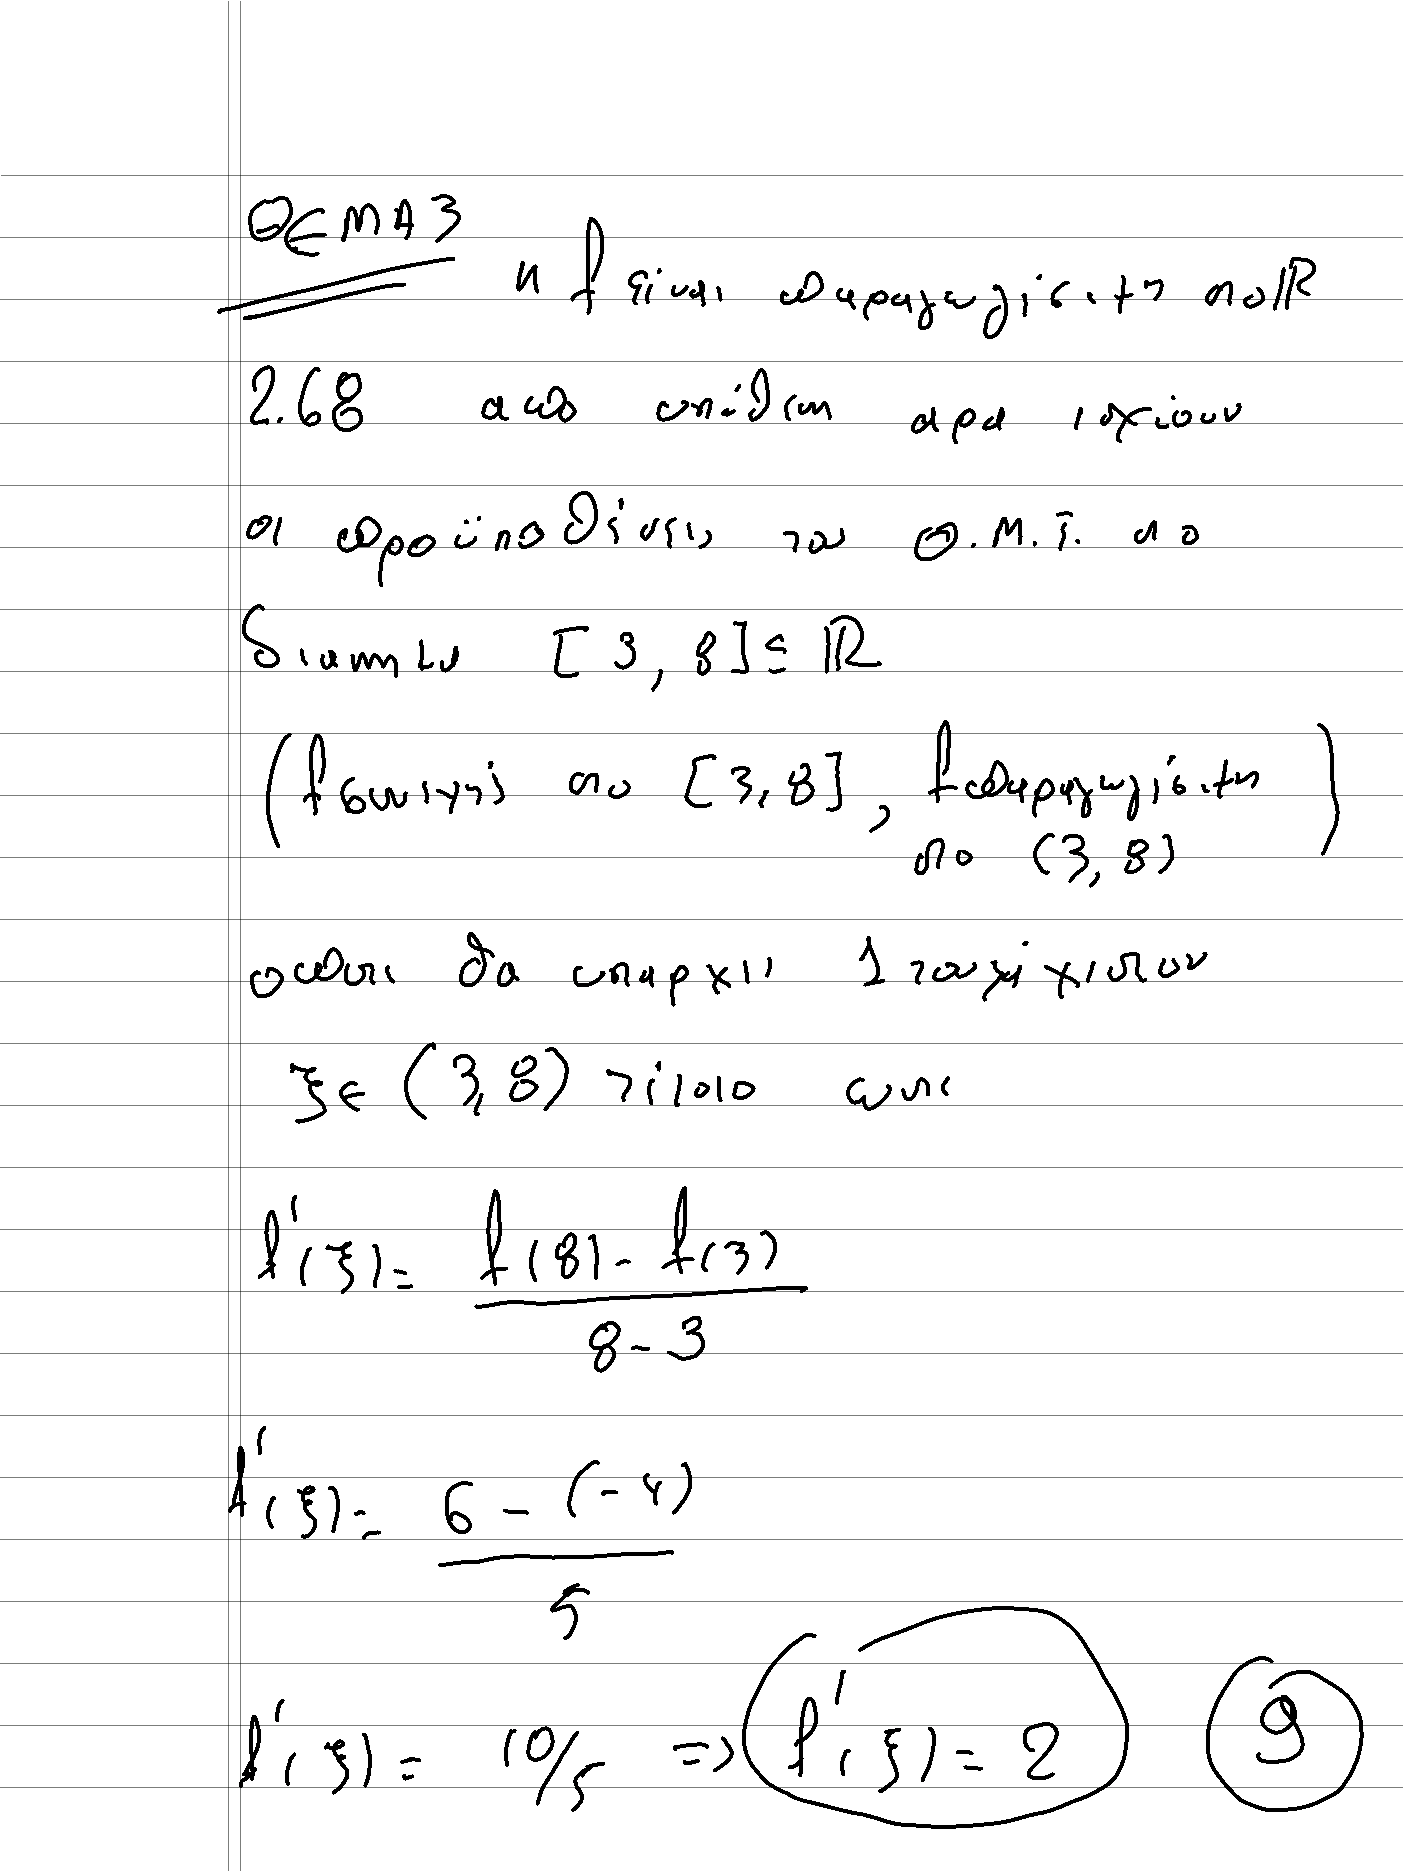 ΘΕΜΑ 3
η f είναι παραγωγίσιμη στο ℝ
2.68 από υπόθεση αρα ισχύουν
οι προϋποθέσεις του Θ.Μ.Τ. στο
διαστημα [3, 8] ⊆ ℝ
(f συνεχής στο [3, 8], f παραγωγίσιμη
στο (3, 8))
οποτε θα υπαρχει 1 τουλάχιστον
ξ ∈ (3, 8) τέτοιο ωστε
f'(ξ) = f(8) - f(3)
8 - 3
f'(ξ) = 6 - (-4)
5
f'(ξ) = 10/5 => f'(ξ) = 2
9